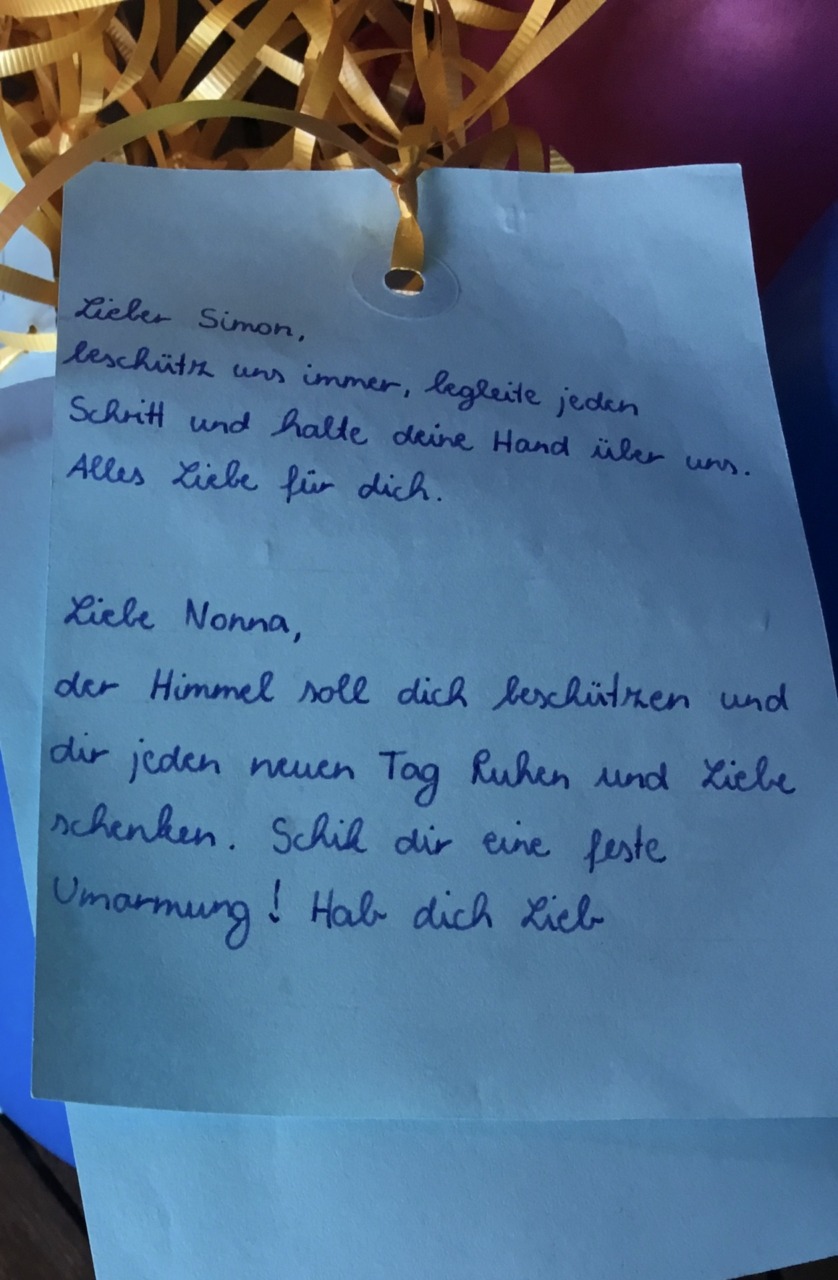 Lieber Simon,
beschütz uns immer, begleite jeden
Schritt und halte deine Hand über uns.
Alles Liebe für dich.
Liebe Nonna,
der Himmel soll dich beschützen und
dir jeden neuen Tag Ruhen und Liebe
schenken. Schik dir eine feste
Umarmung! Hab dich Lieb